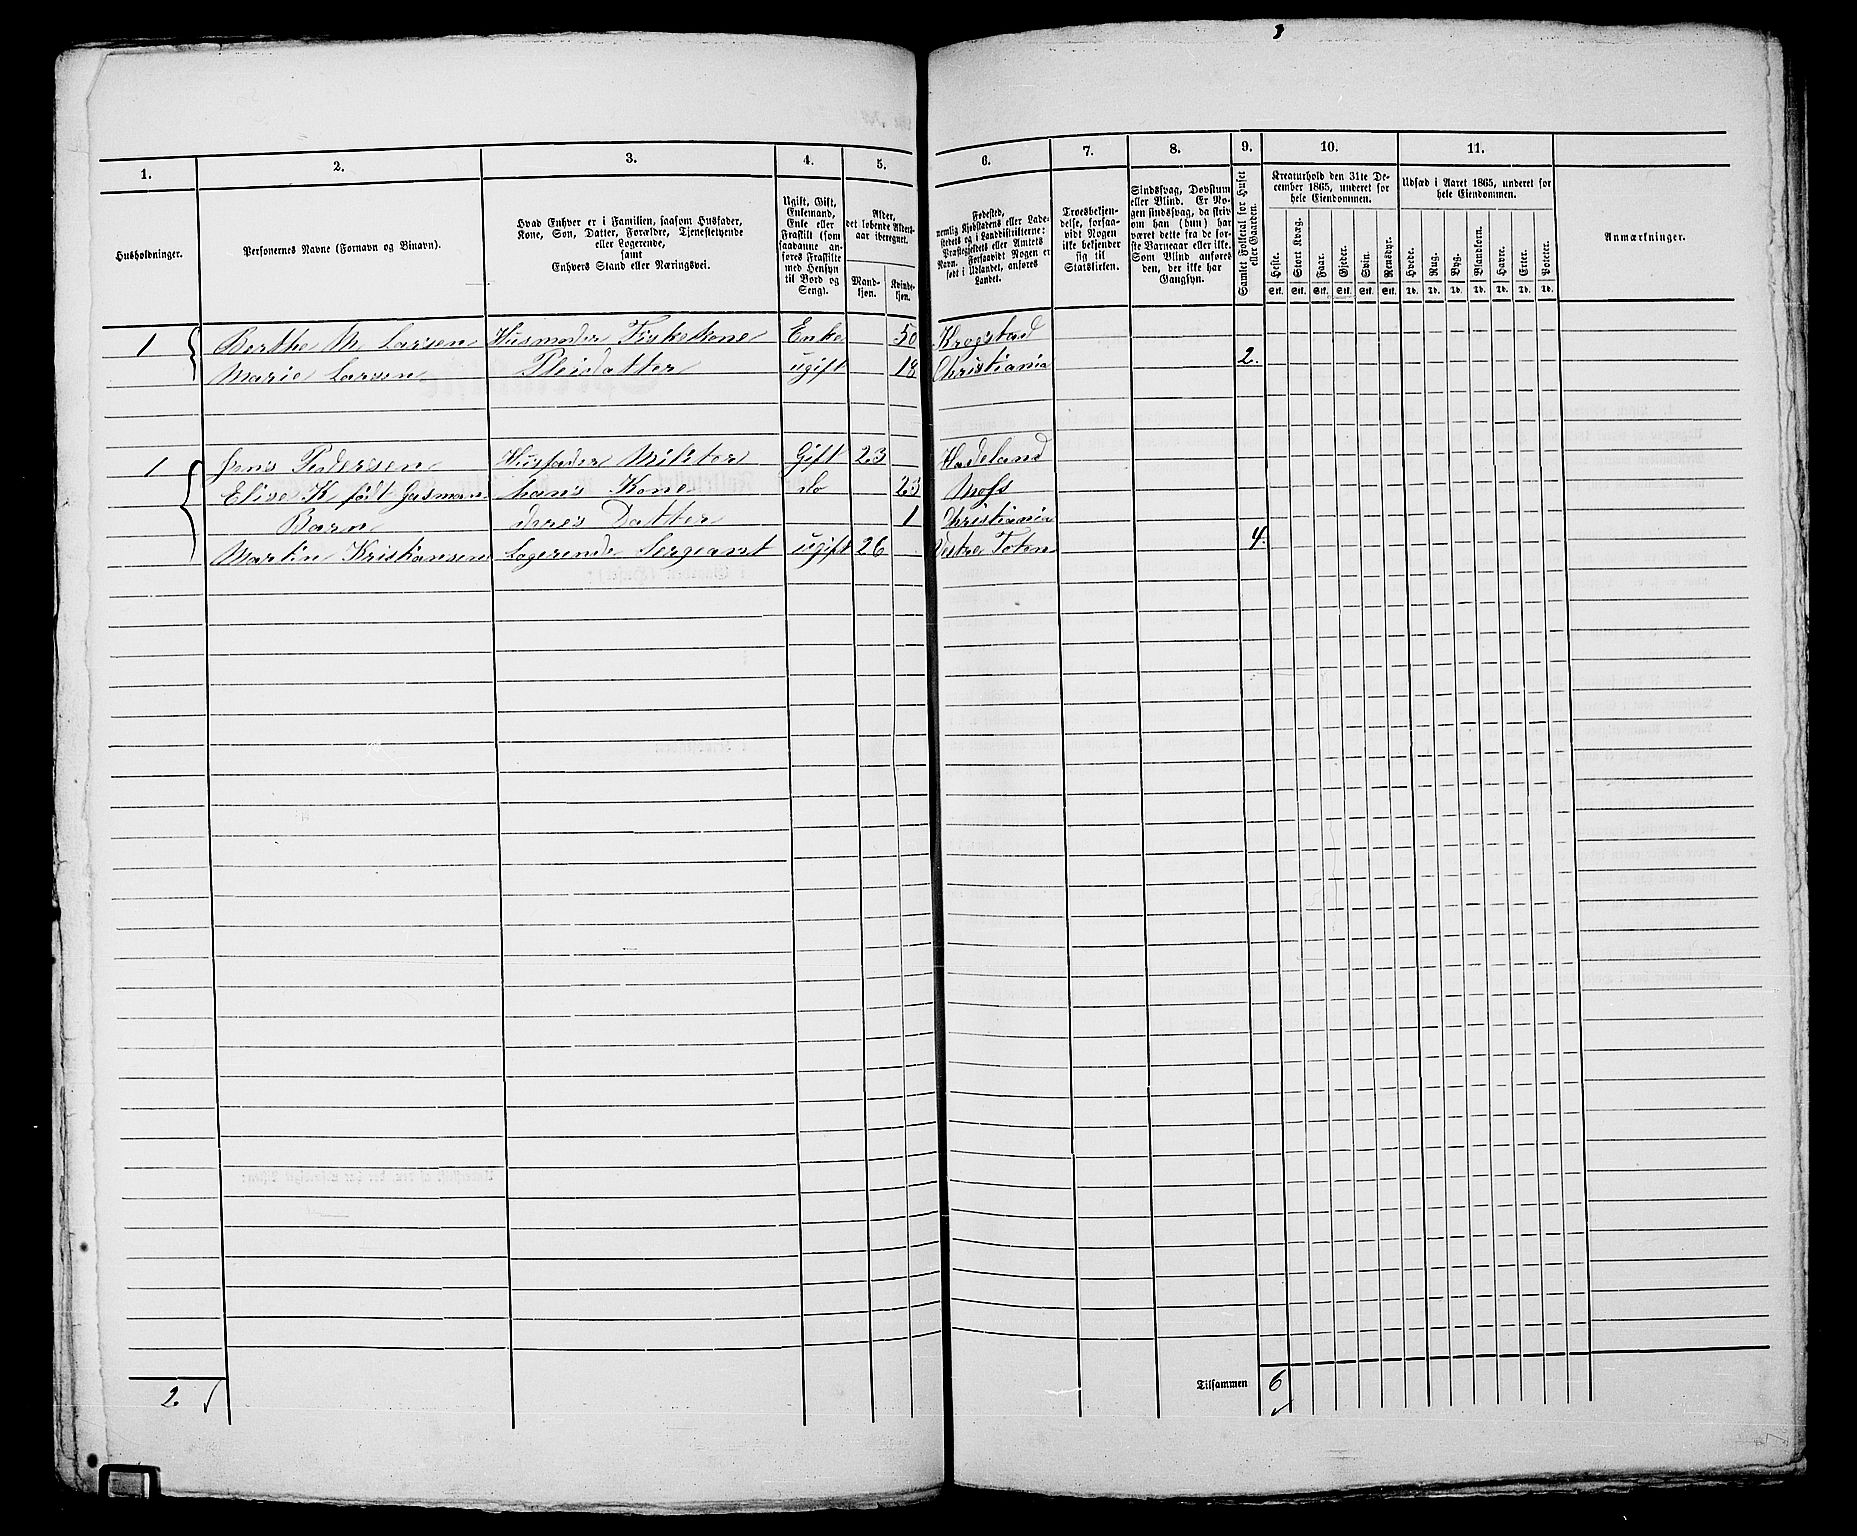 1. 2. 3. 4. 5. 6. 7. 8. 9. 10. 11.
Husholdninger.
Personernes Navne (Fornavn og Binavn).
Hvad Enhver er i Familien, saasom Husfader,
Kone, Søn, Datter, Forældre, Tjenestetyende
eller Logerende,
samt
Enhvers Stand eller Næringsvei.
Ugift, Gift,
Enkemand,
Enke eller
Fraskilt (som
saadanne an-
føres Fraskilte
med Hensyn
til Bord og
Seng).
Alder,
det løbende Alders-
aar iberegnet.
Mand-
kjøn.
Kvinde-
kjøn.
Fødested,
nemlig Kjøbstadens eller Lade-
stedets og i Landdistrikterne:
Præstegjeldets eller Amtets
Navn. Forsaavidt Nogen er
født i Udlandet, anføres
Landet.
Troesbekjen-
delse, forsaa-
vidt Nogen
ikke bekjender
sig til
Statskirken.
Sindssvag, Døvstum
eller Blind. Er No-
gen sindssvag, da skriv
om han (hun) har
været dette fra de før-
ste Barneaar eller ikke.
Som Blind anføres
den, der ikke har
Gangsyn.
Samlet Folketal for Huset
eller Gaarden.
Kreaturhold den 31te De-
cember 1865, underet for
hele Eiendommen.
Heste. Stort Kvæg. Faar. Gjeder. Svin. Rensdyr.
Stk. Stk. Stk. Stk. Stk. Stk.
Udsæd i Aaret 1865, underet for
hele Eiendommen.
Hvede. Rug. Byg. Blandkorn. Havre. Erter. Poteter.
Td. Td. Td. Td. Td. Td. Td.
Anmærkninger.
1 Berthe M Larsen Husmoder Enke 50 Krogstad
Marie Larsen Pleiedatter ugift 18 Christiania 2.
1 Jens Pedersen Husfader Gift 23 Hadeland
Elise K født Gasmann hans Kone do 23 Moss
Barn deres Datter 1 Christiania
Martin Kristiansen Logerende Sergeant ugift 26 Vestre Toten 4.
2. Tilsammen 6